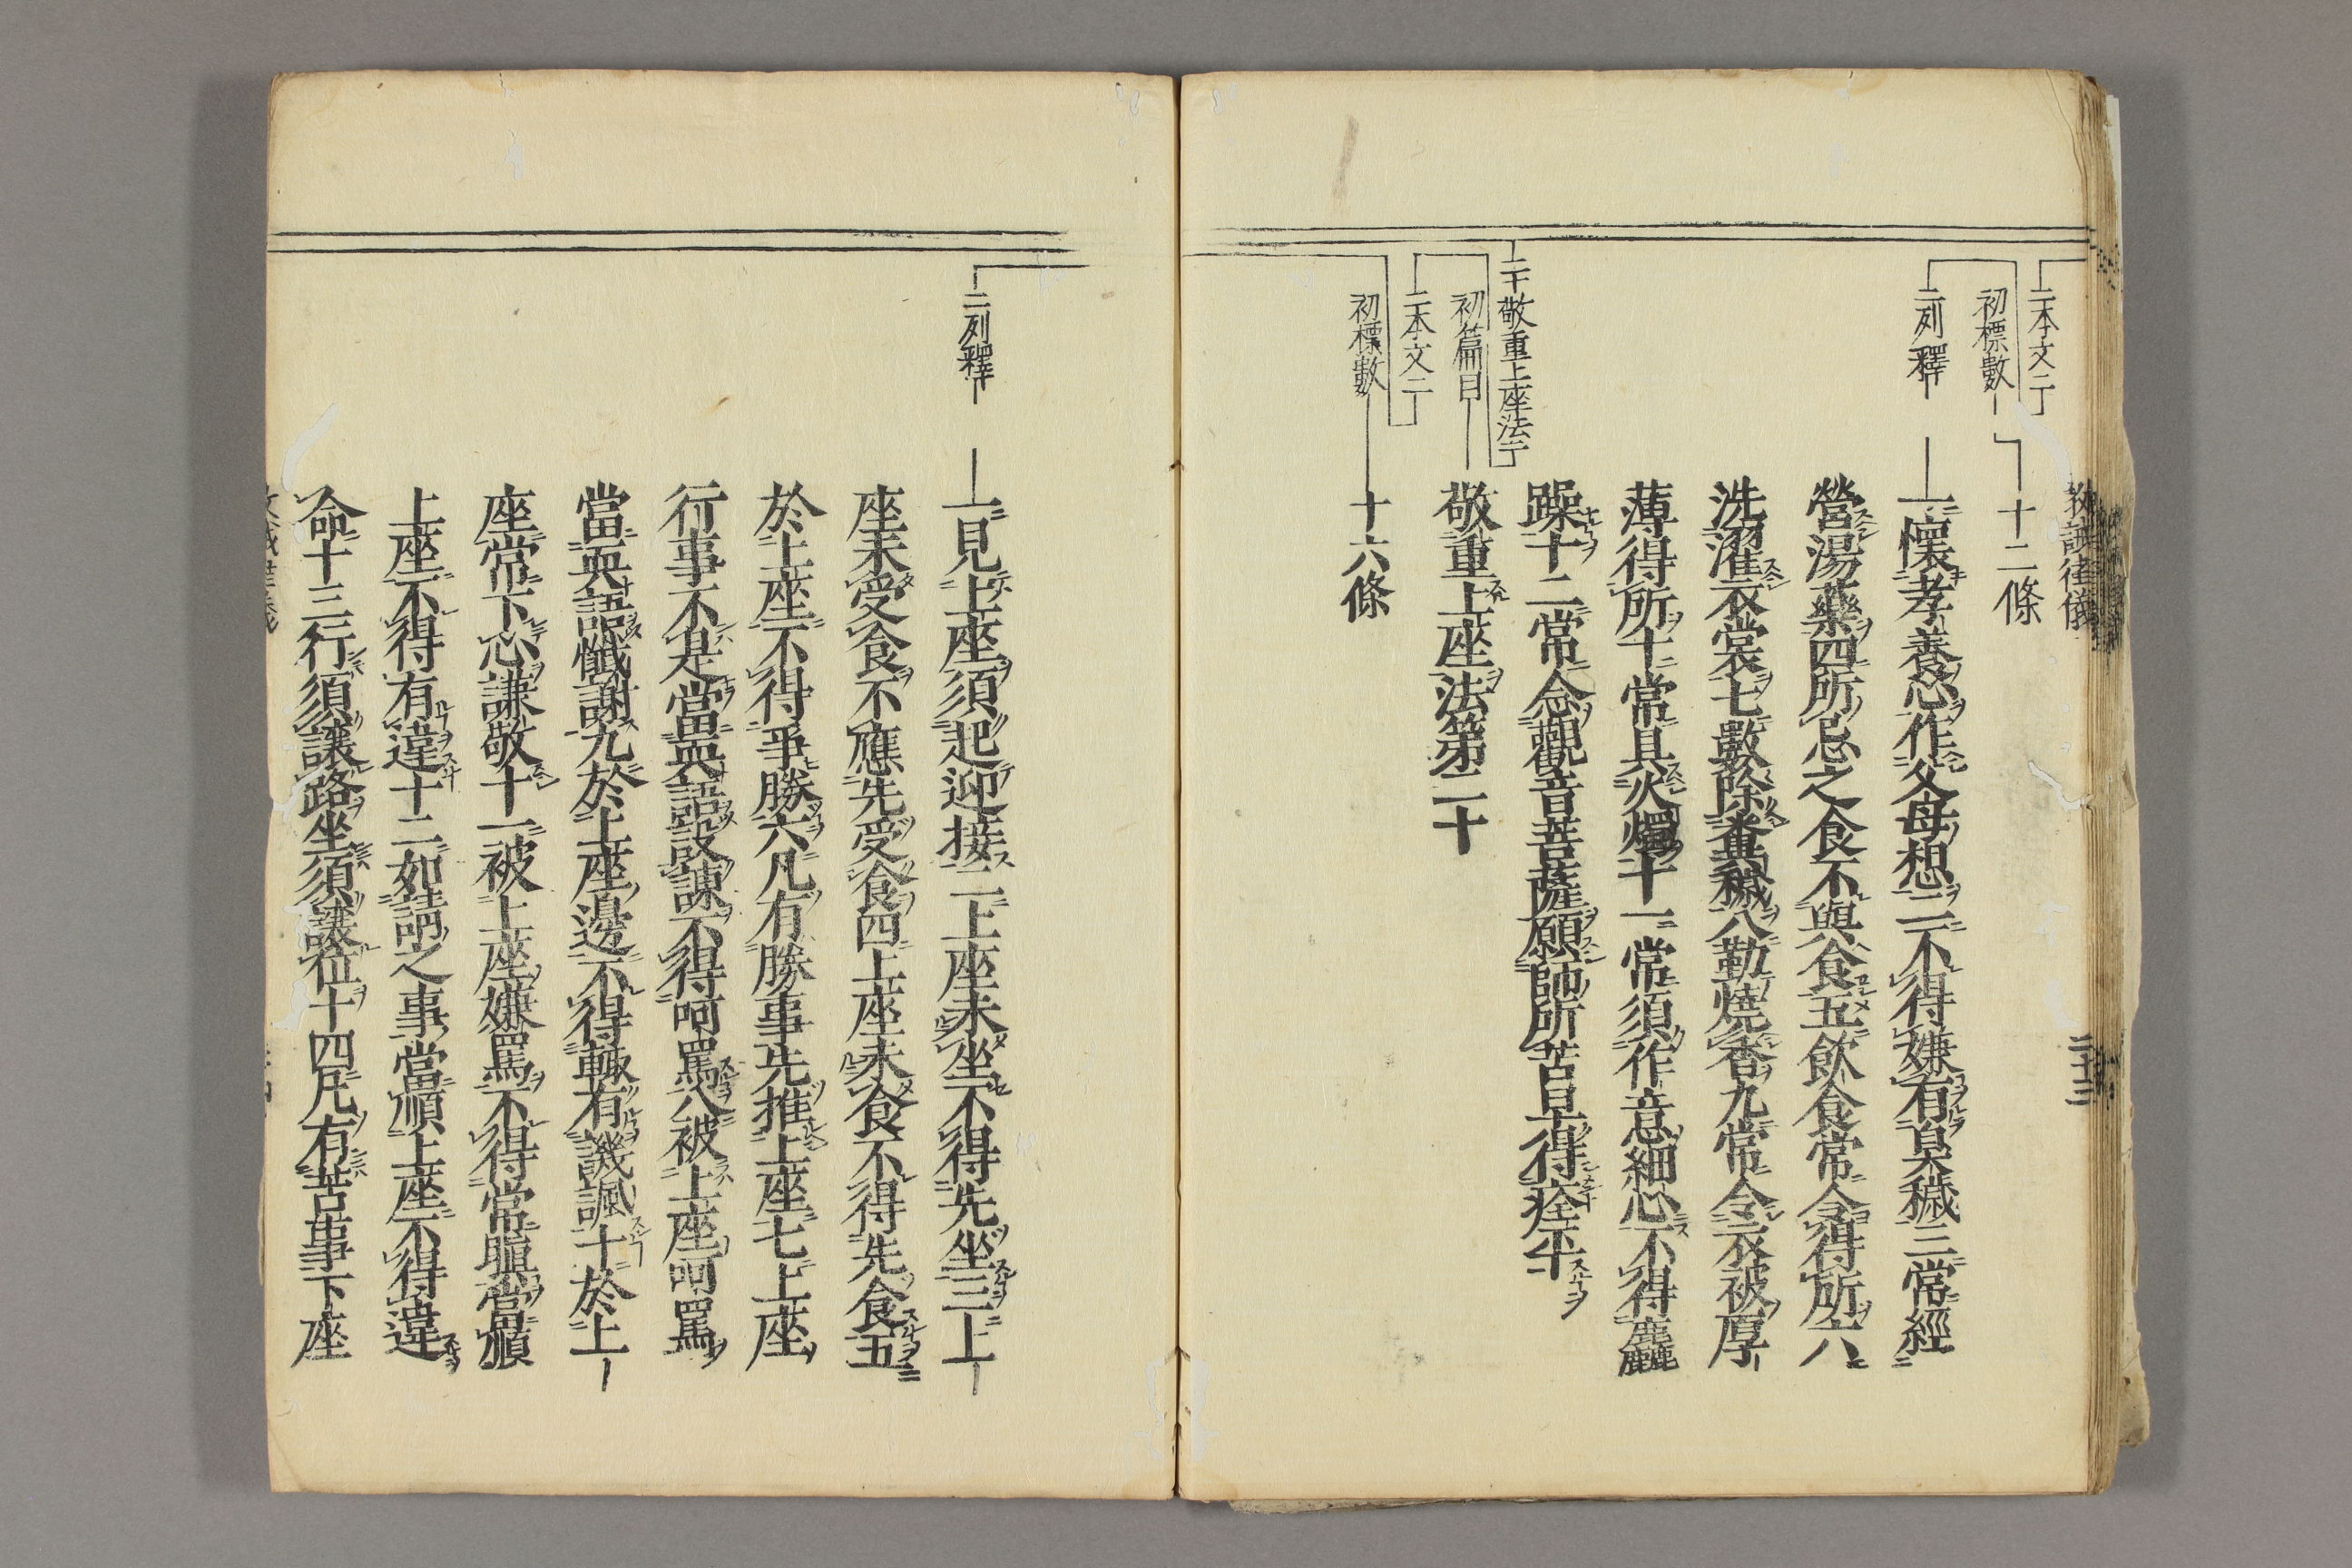 教誡律儀
二十三
二本文二
初標數
十二條
二列釋
一懷孝養心作父母想二不得嫌有臭穢三常經
營湯藥四所忌之食不與食五飲食常令得所六
洗濯衣裳七數除糞穢八勤燒香九常令衣被厚
薄得所十常具火燭十一常須作意細心不得麤
躁十二常念觀音菩薩願師所苦早得痊平
二十敬重上座法二
初篇目
敬重上座法第二十
二本文二
初標數
十六條
二列釋
一見上座須起迎接二上座未坐不得先坐三上
座未受食不應先受食四上座未食不得先食五
於上座不得爭勝六凡有勝事先推上座七上座
行事不是當耎語設諫不得呵罵八被上座呵罵
當耎語懺謝九於上座邊不得輙有譏諷十於上
座常下心謙敬十一被上座嫌罵不得常瞋當順
上座不得有違十二如請之事當順上座不得違
命十三行須讓路坐須讓位十四凡有苦事下座